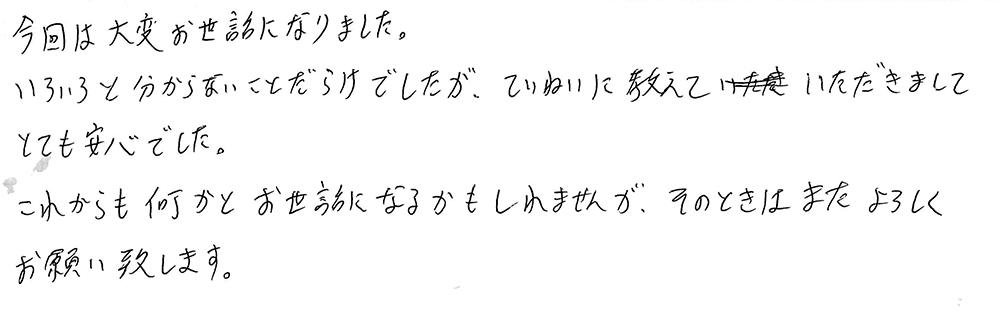 今回は大変お世話になりました。
いろいろと分からないことだらけでしたが、ていねいに教えていただきまして
とても安心でした。
これからも何かとお世話になるかもしれませんが、そのときはまたよろしく
お願い致します。